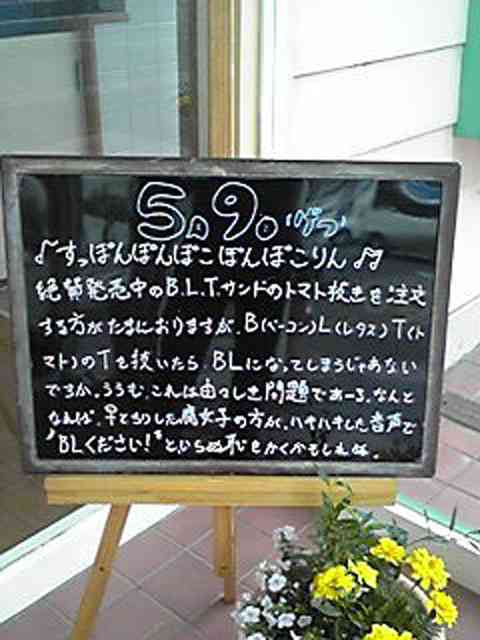 5月9日 げつ
♪すっぽんぽんぽこぽんぽこりん♪♫
絶賛発売中のB.L.T.サンドのトマト抜きを注文
する方がたまにおりますが、B(ベーコン)L(レタス)T(ト
マト)のTを抜いたら、BLになってしまうじゃあない
ですか。ううむ、これは由々しき問題であーる。なんと
なれば、早とちりした腐女子の方が、ハキハキした音声で
"BLください!"といらぬ恥をかくかもしれぬ。